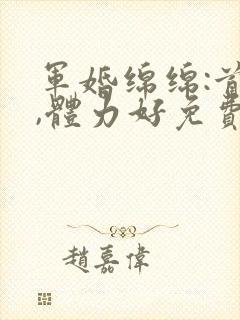 軍婚綿綿:首
,體力好免費
趙嘉偉